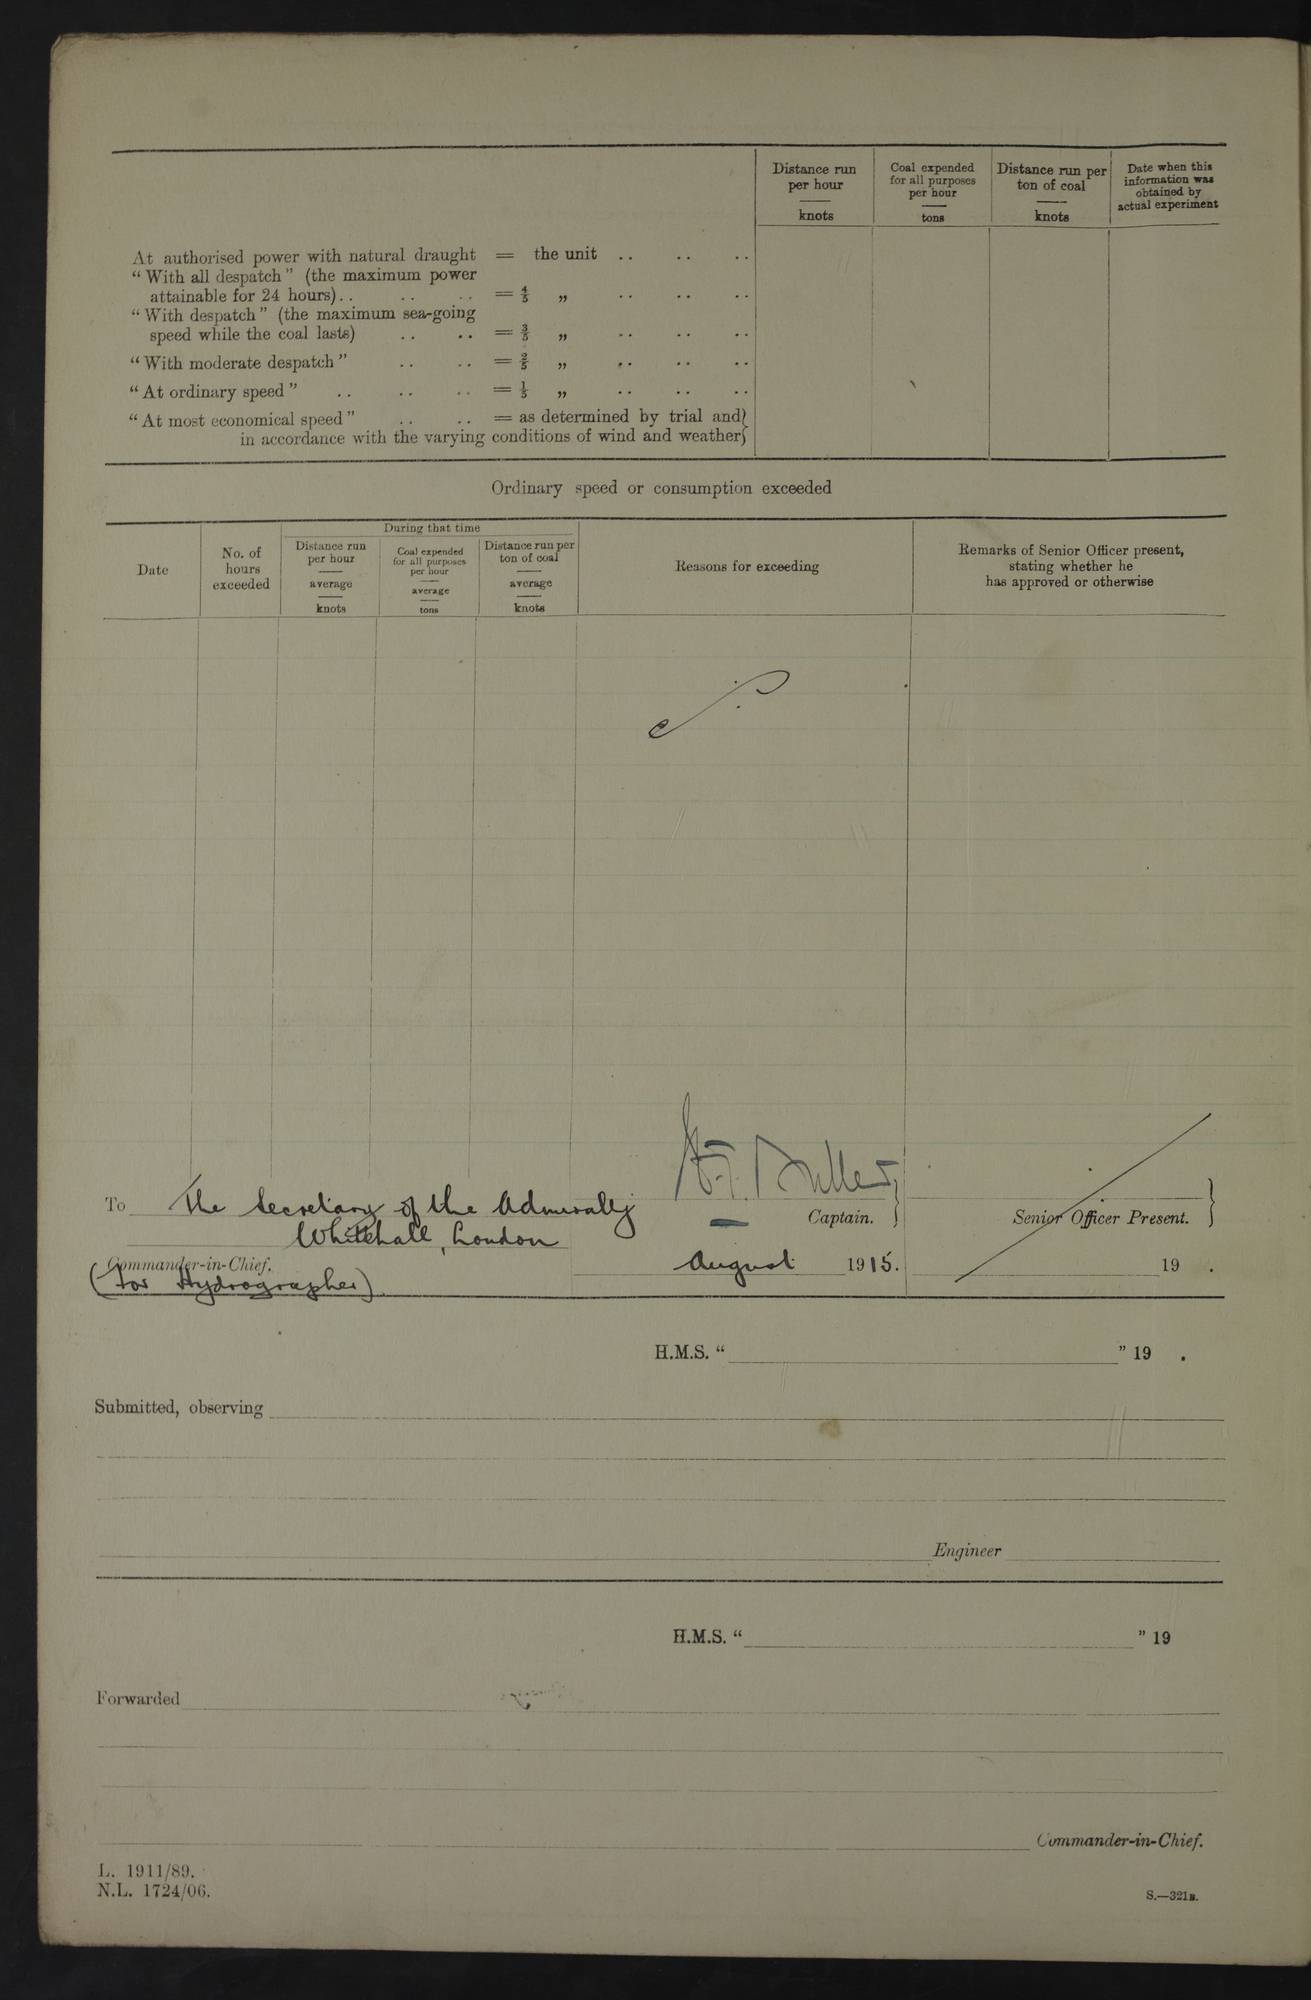 Distance run per hour knots
Coal expended for all purposes per hour tons
Distance run per ton of coal knots
Date when this information was obtained by actual experiment
At authorised power with natural draught = the unit .. .. ..
“With all despatch” (the maximum power
attainable for 24 hours).. .. .. = 4/5 „ .. .. ..
“With despatch” (the maximum sea-going
speed while the coal lasts) .. .. = 3/5 „ .. .. ..
“With moderate despatch” .. .. = 2/5 „ .. .. ..
“At ordinary speed” .. .. .. = 1/5 „ .. .. ..
“At most economical speed” .. .. = as determined by trial and}
in accordance with the varying conditions of wind and weather}
Ordinary speed or consumption exceeded
Date
No. of hours exceeded
During that time
Distance run per hour average knots
Coal expended for all purposes per hour average tons
Distance run per ton of coal average knots
Reasons for exceeding
Remarks of Senior Officer present, stating whether he has approved or otherwise
To The Secretary of the Admiralty
Whitehall, London
Captain. }
Senior Officer Present. }
Commander-in-Chief.
(for Hydrographer)
August 1915.
19 .
H.M.S. “ ” 19 .
Submitted, observing
Engineer
H.M.S. “ ” 19
Forwarded
Commander-in-Chief.
L. 1911/89.
N.L. 1724/06.
S.—321B.